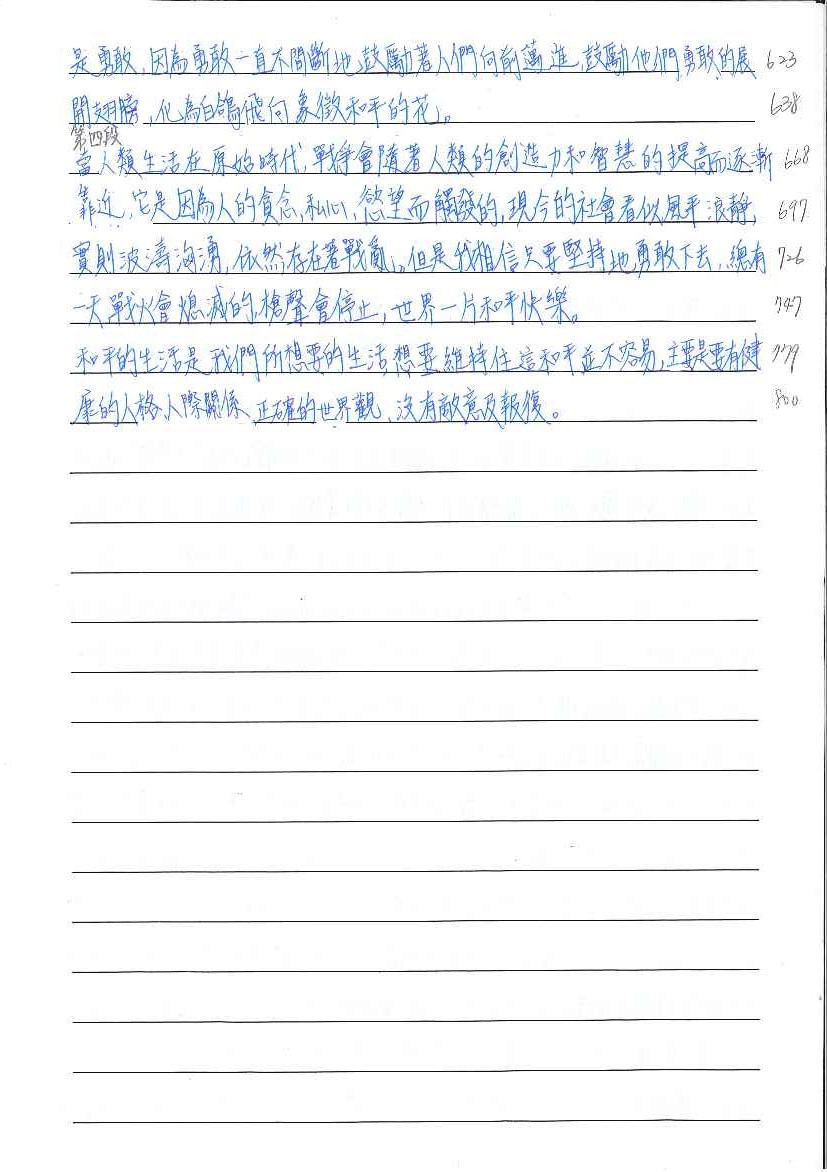 是勇敢，因為勇敢一直不間斷地鼓勵著人們向前邁進，鼓勵他們勇敢的展 623
開翅膀，化為白鴿飛向象徵和平的花」。 638
第四段
當人類生活在原始時代，戰爭會隨著人類的創造力和智慧的提高而逐漸 668
靠近，它是因為人的貪念，私心，慾望而觸發的，現今的社會看似風平浪靜， 697
實則波濤洶湧，依然存在著戰亂」。但是我相信只要堅持地勇敢下去，總有 726
一天戰火會熄滅的，槍聲會停止，世界一片和平快樂。 747
和平的生活是我們所想要的生活，想要維持住這和平並不容易，主要是要有健 779
康的人格、人際關係、正確的世界觀，沒有敵意及報復。 800